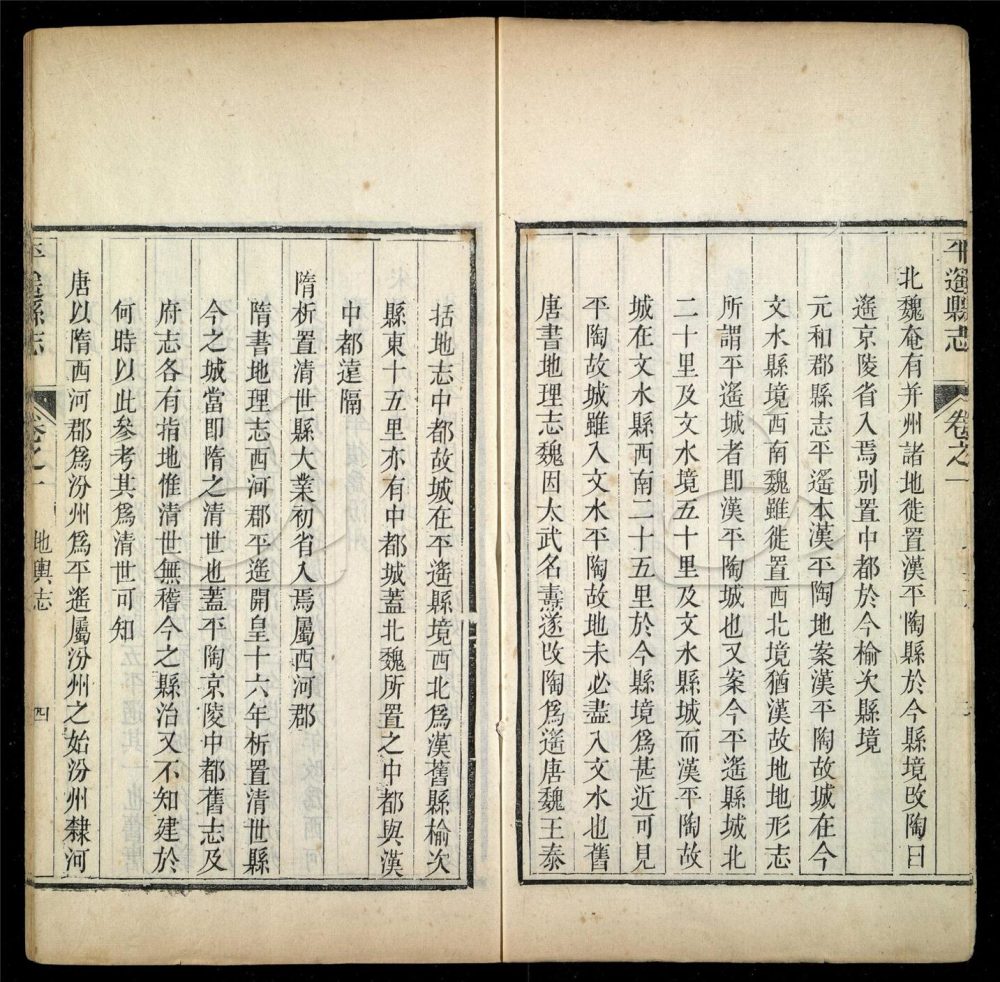 平遙縣志
卷之一
北魏奄有并州諸地徙置漢平陶縣於今縣境改陶曰
遙京陵省入焉別置中都於今榆次縣境
元和郡縣志平遙本漢平陶地案漢平陶故城在今
文水縣境西南魏雖徙置西北境猶漢故地地形志
所謂平遙城者即漢平陶城也又案今平遙縣城北
二十里及文水境五十里及文水縣城而漢平陶故
城在文水縣西南二十五里於今縣境爲甚近可見
平陶故城雖入文水平陶故地未必盡入文水也舊
唐書地理志魏因太武名燾遂改陶爲遙唐魏王泰
括地志中都故城在平遙縣境西北爲漢舊縣榆次
縣東十五里亦有中都城蓋北魏所置之中都與漢
中都違隔
隋析置清世縣大業初省入焉屬西河郡
隋書地理志西河郡平遙開皇十六年析置清世縣
今之城當即隋之清世也蓋平陶京陵中都舊志及
府志各有指地惟清世無稽今之縣治又不知建於
何時以此參考其爲清世可知
唐以隋西河郡爲汾州爲平遙屬汾州之始汾州隸河
縣志
卷之一
地輿志
四